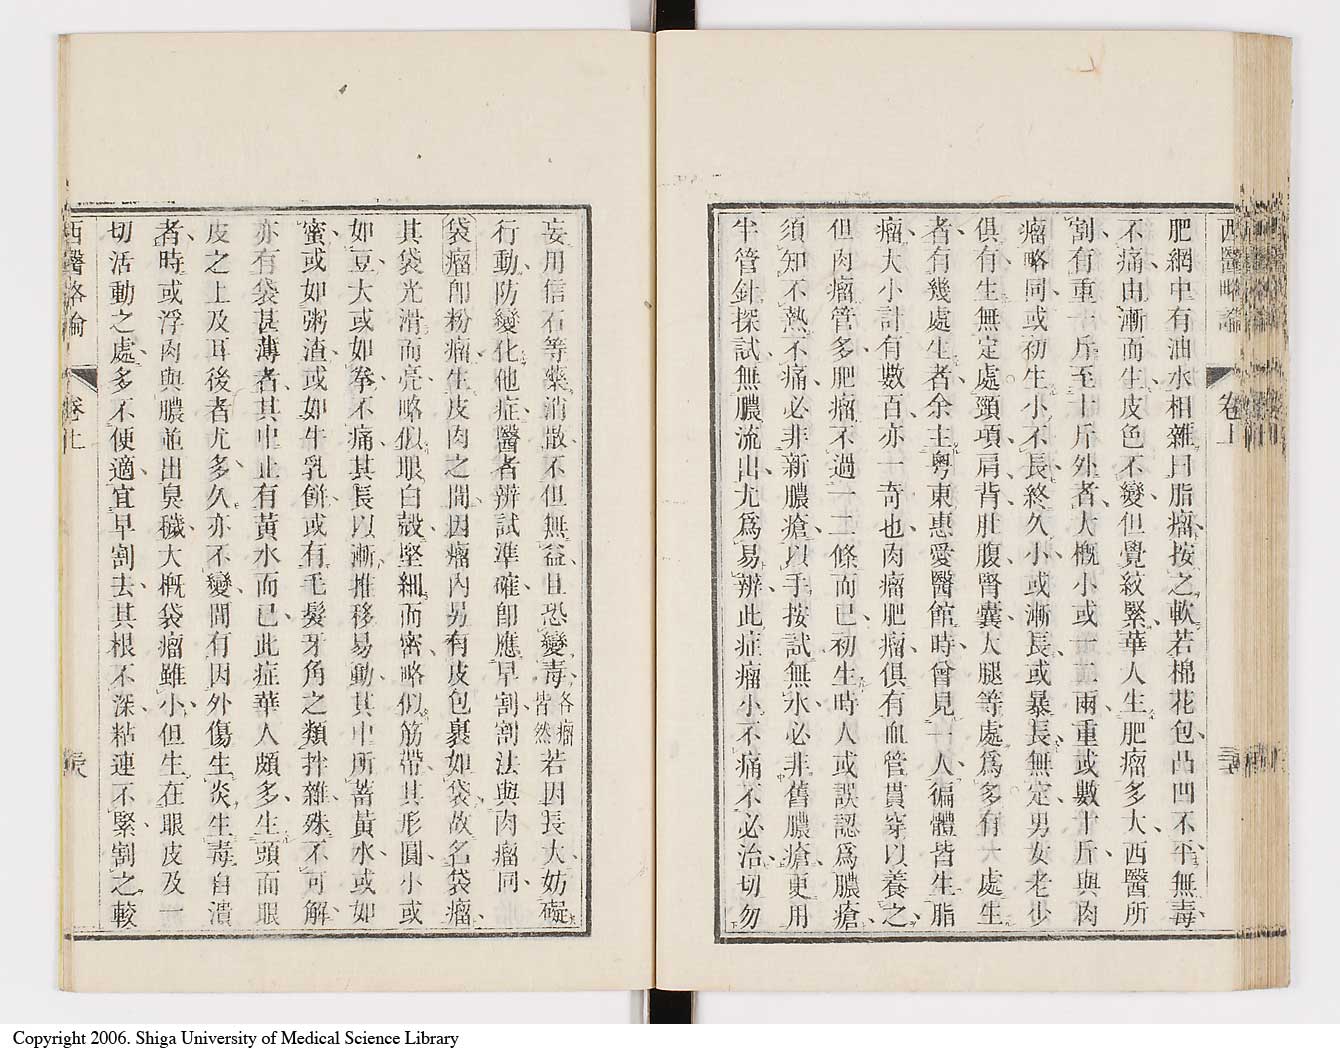 西醫略論 卷上
肥網中有油水相雜曰脂瘤按之軟若棉花包凸凹不平無毒
不痛由漸而生皮色不變但覺紋緊華人生肥瘤多大西醫所
割有重十斤至廿斤外者大概小或一二兩重或數十斤與肉
瘤略同或初生小不長終久小或漸長或暴長無定男女老少
俱有生無定處頸項肩背肚腹腎囊大腿等處爲多有一處生
者有幾處生者余主粵東惠愛醫館時曾見一人徧體皆生脂
瘤大小計有數百亦一奇也肉瘤肥瘤俱有血管貫穿以養之
但肉瘤管多肥瘤不過一二條而已初生時人或誤認爲膿瘡
須知不熱不痛必非新膿瘡以手按試無水必非舊膿瘡更用
半管針探試無膿流出尤爲易辨此症瘤小不痛不必治切勿
妄用信石等藥消散不但無益且恐變毒各瘤皆然若因長大妨礙
行動防變化他症醫者辨試準確卽應早割割法與肉瘤同
袋瘤卽粉瘤生皮肉之間因瘤內另有皮包裹如袋故名袋瘤
其袋光滑而亮略似眼白殼堅細而密略似筋帶其形圓小或
如豆大或如拳不痛其長以漸推移易動其中所蓄黃水或如
蜜或如粥渣或如牛乳餅或有毛髮牙角之類拌雜殊不可解
亦有袋甚薄者其中止有黃水而已此症華人頗多生頭面眼
皮之上及耳後者尤多久亦不變間有因外傷生炎生毒自潰
者時或浮肉與膿並出臭穢大概袋瘤雖小但生在眼皮及一
切活動之處多不便適宜早割去其根不深粘連不緊割之較
西醫略論 卷上
Copyright 2006. Shiga University of Medical Science Library